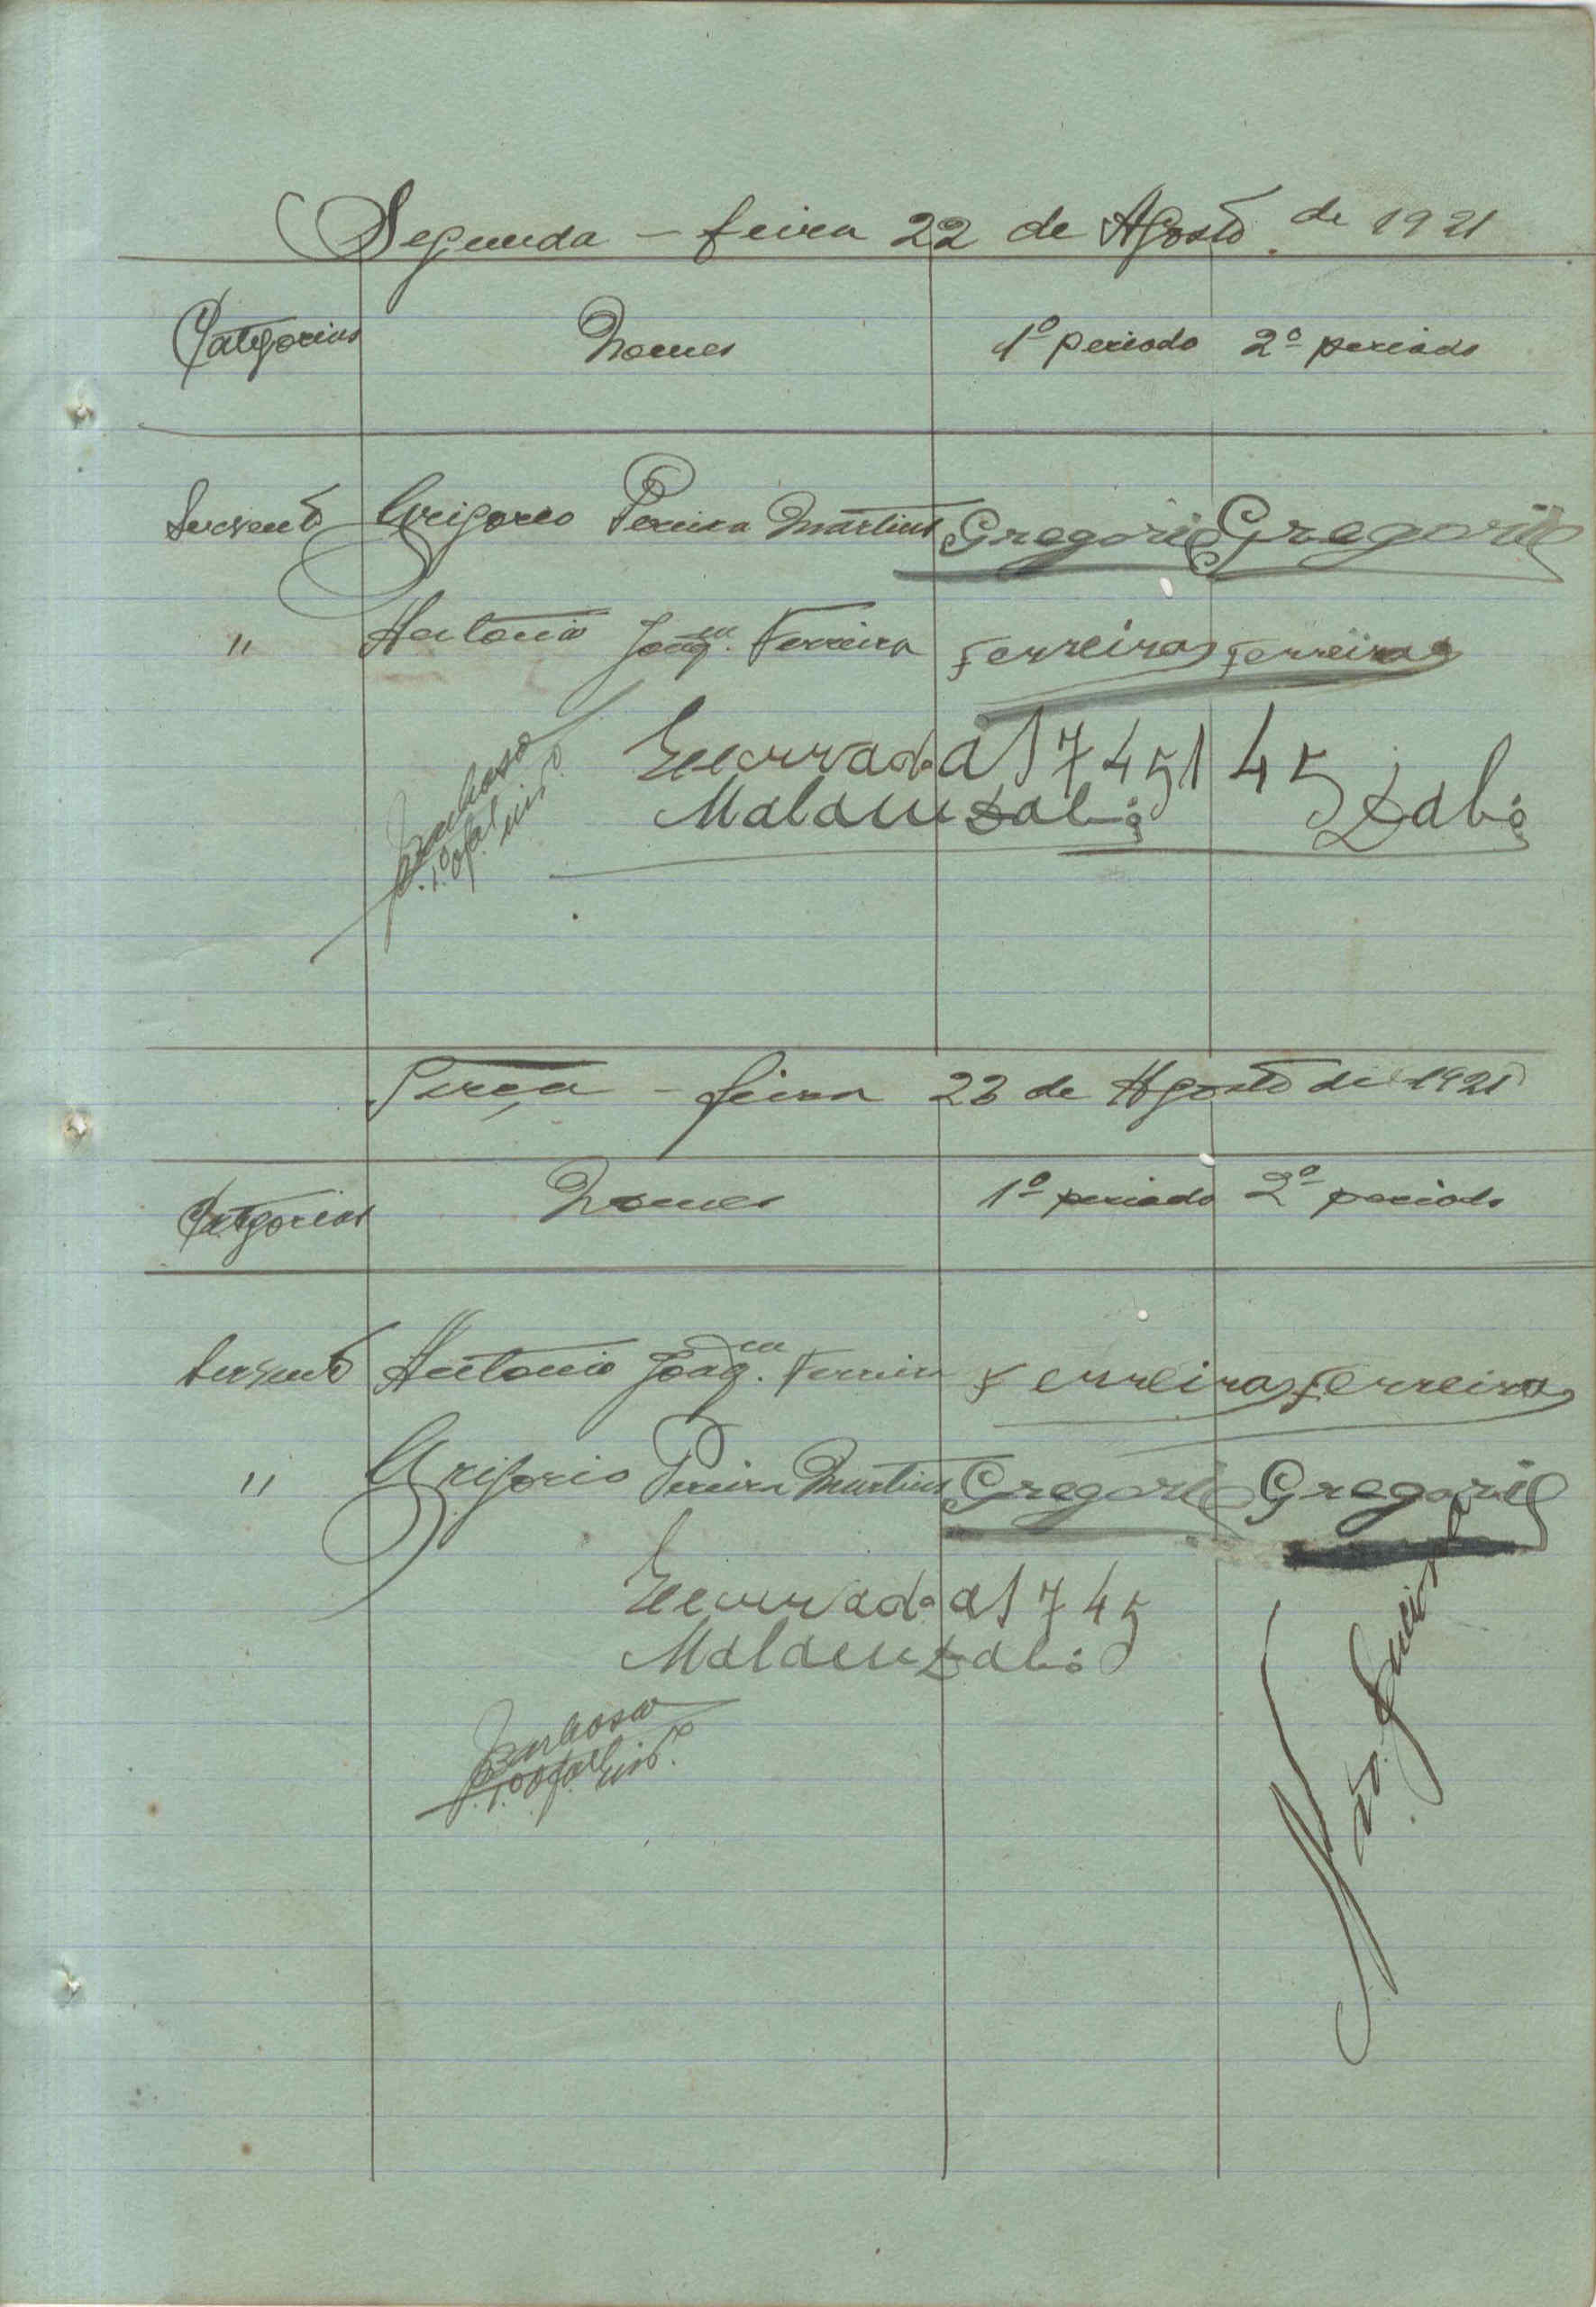 Segunda - feira 22 de Agosto de 1921
Categorias Nomes 1º periodo 2º periodo
Servente Grigorio Pereira Martins Gregorio Gregorio
" Antonio Joaqm. Ferreira Ferreira Ferreira
Encerrada a 1 7 45 1 45
Barbosa
1º ofal
Terça - feira 23 de Agosto de 1921
Categorias Nomes 1º periodo 2º periodo
Servente Antonio Joaqm. Ferreira Ferreira Ferreira
" Grigorio Pereira Martins Gregorio Gregorio
Encerrada a 1 7 45
Barbosa
1º ofal